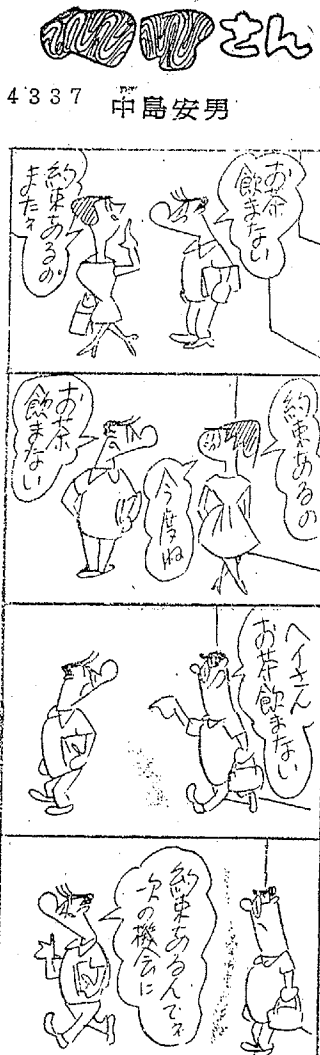 さん
4337
中島安男
お茶
飲まない
約束あるの。
またネ
約束あるの
今度ね
お茶
飲まない
ヘイさん
お茶飲まない
約束あるんでネ
次の機会に